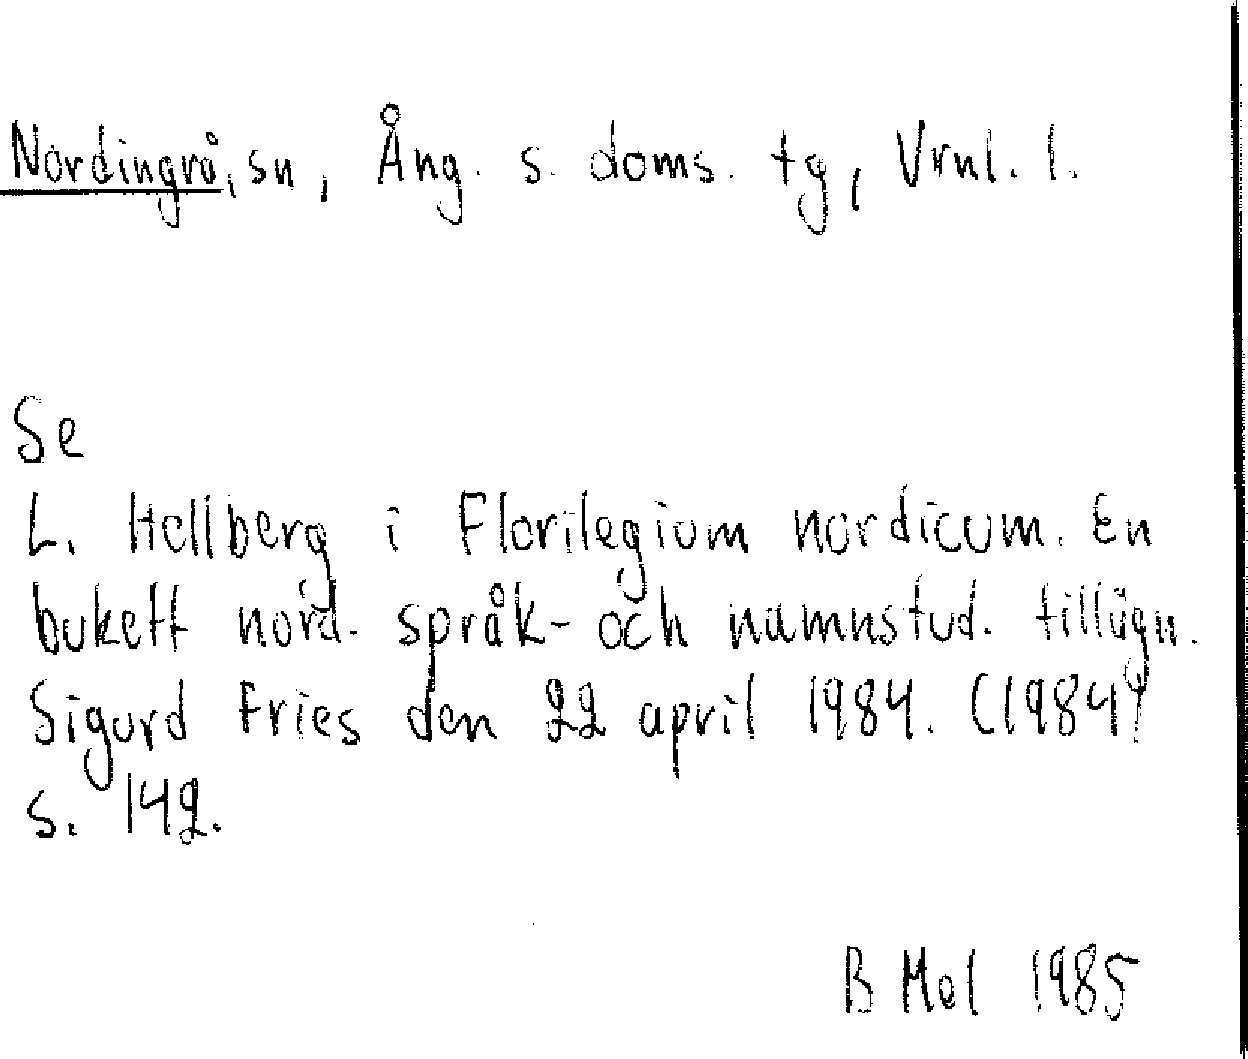 Nordingrå, sn, Ång. s. doms. tg, Vrnl. l.
Se
L. Hellberg i Florilegium nordicum. En
bukett nord. språk- och namnstud. tillägn.
Sigurd Fries den 22 april 1984. (1984)
s. 142.
B Mel 1985